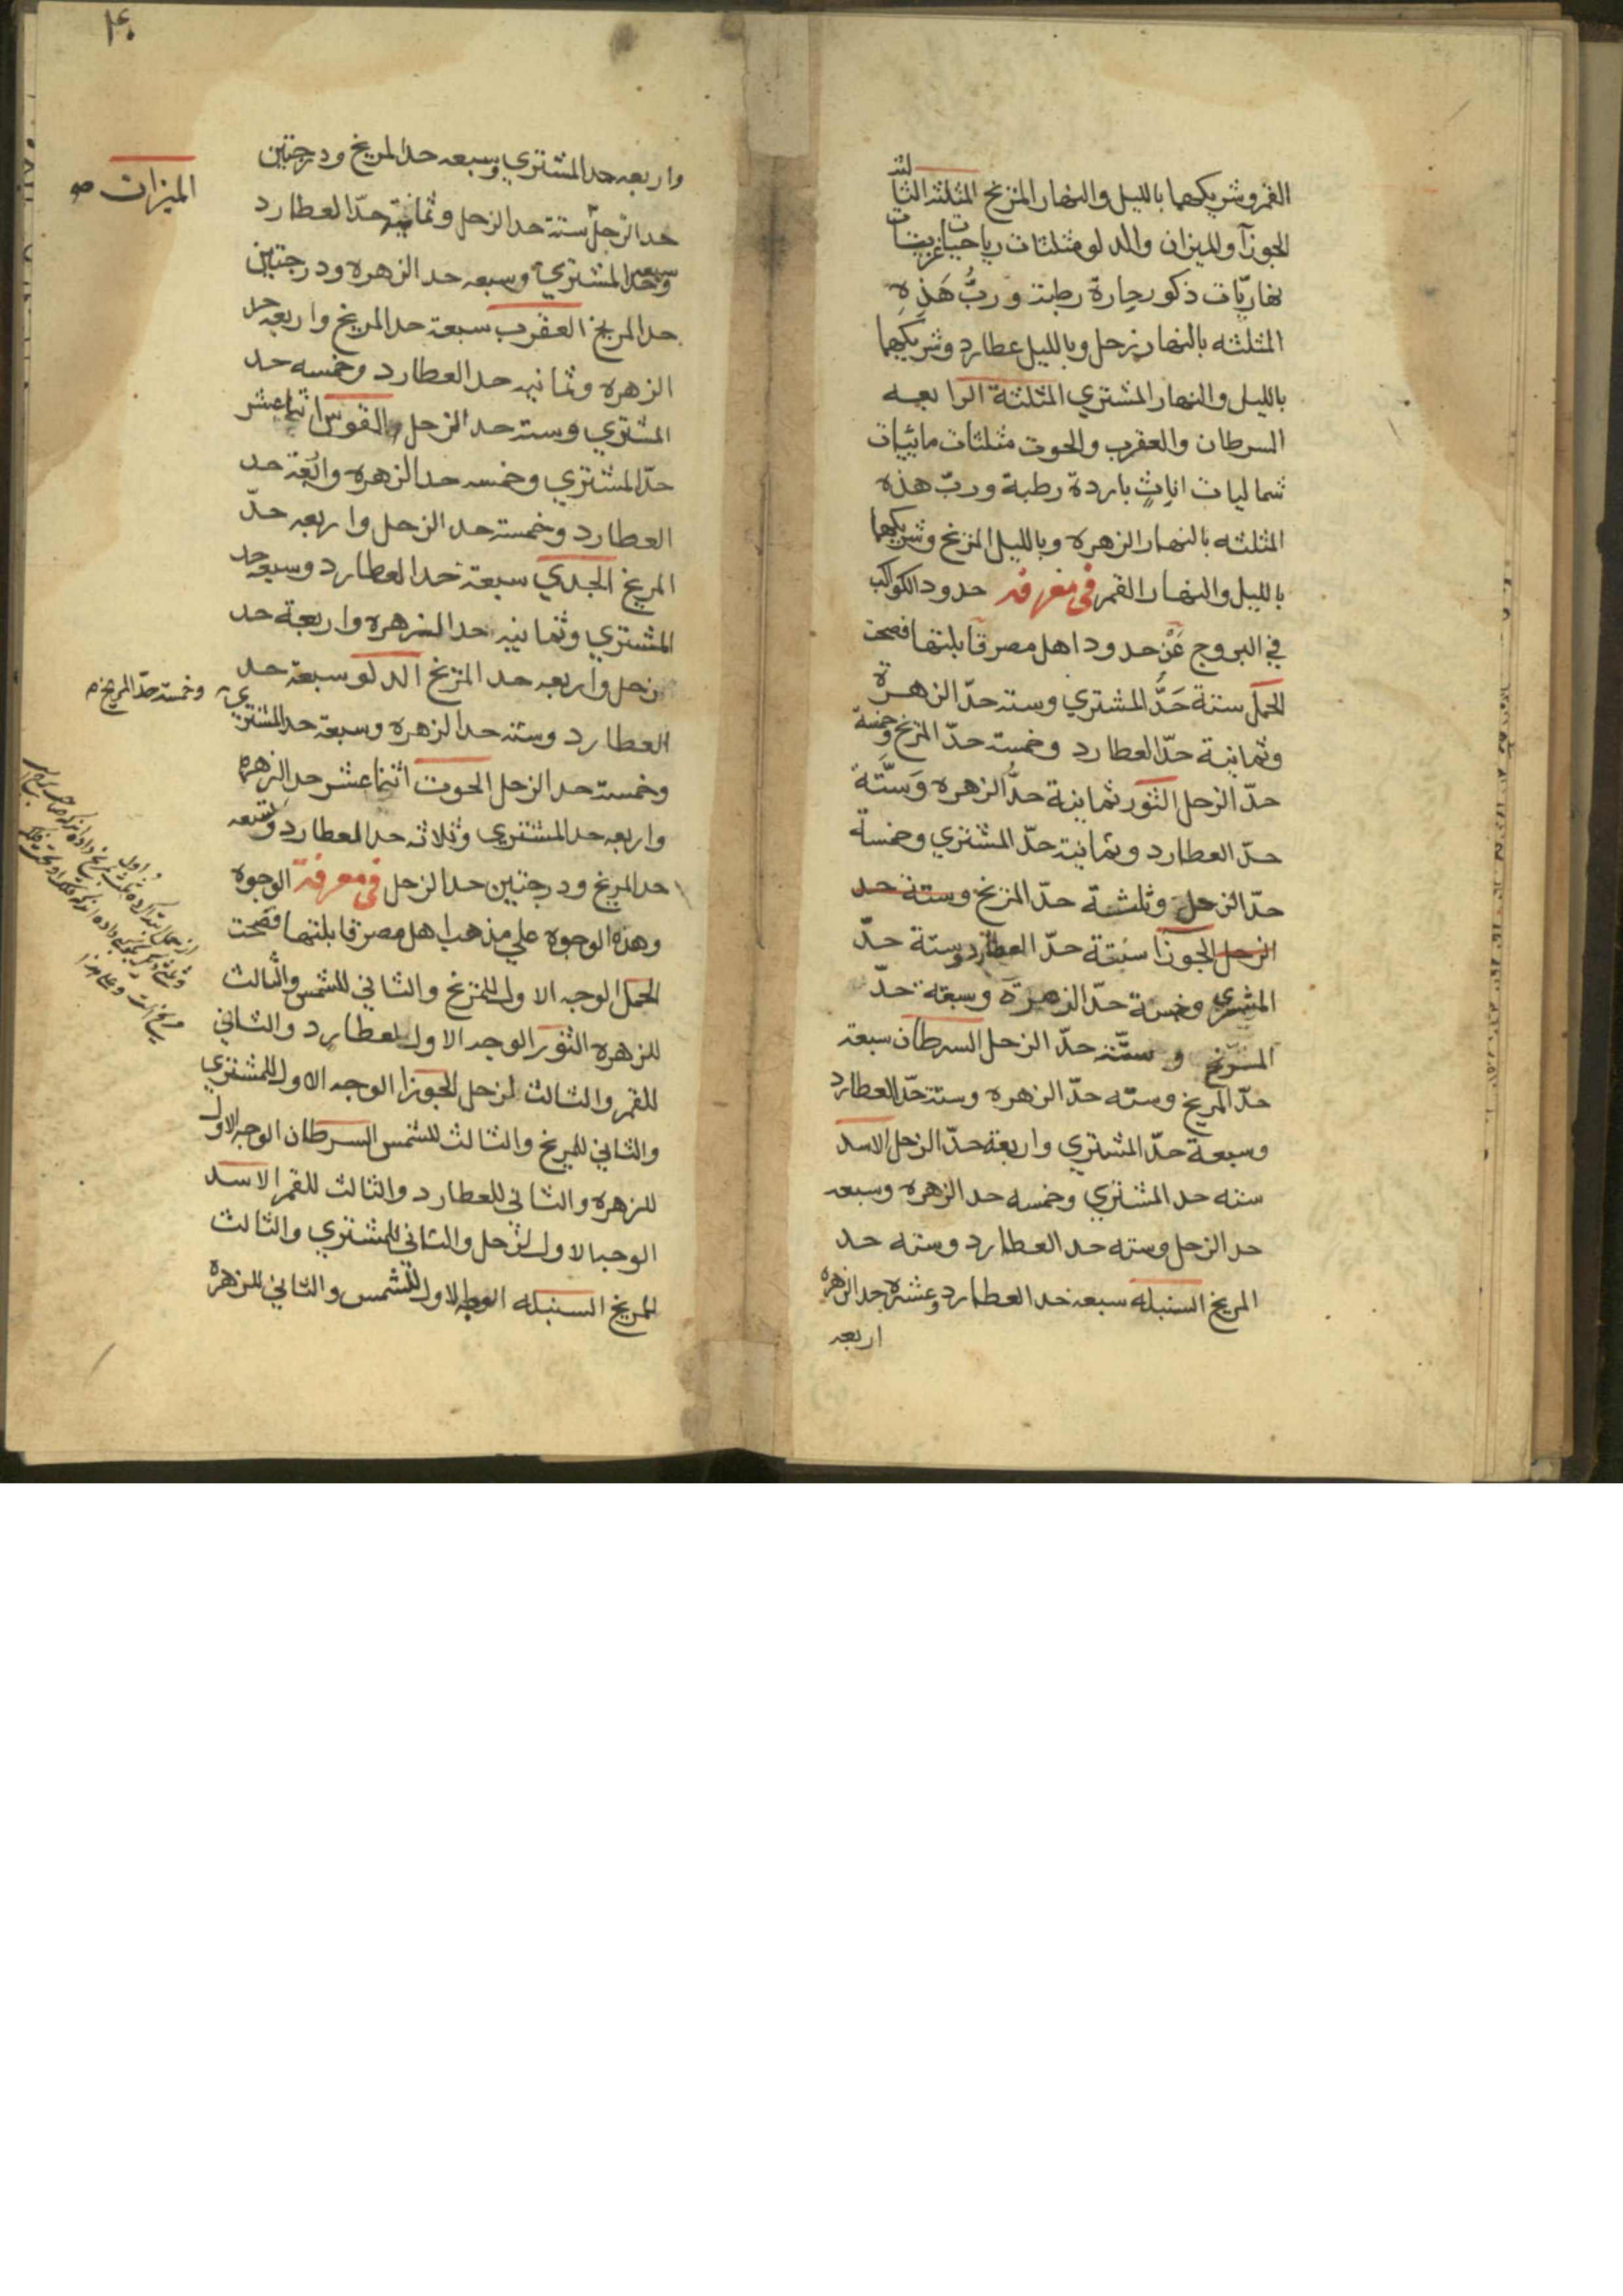 القمر وشريكهما بالليل والنهار المريخ المثلثة الثالثة
الجوزآ والميزان والدلو مثلثات رياحيات غربيات
نهاريّات ذكور حارة رطبة وربُّ هَذِهِ
المثلثه بالنهار زحل وبالليل عطارد وشريكهما
بالليل والنهار المشتري المثلثة الرابعه
السرطان والعقرب والحوت مثلثات مائيات
شماليات اناثٍ باردة رطبة وربّ هذه
المثلثه بالنهار الزهره وبالليل المريخ وشريكهما
بالليل والنهار القمر في معرفة حدود الكواكب
في البروج عَنْ حدود اهل مصر قابلتها فصحت
الحمل ستة حَدُّ المشتري وسته حدّ الزهرة
وثمانية حدّ العطارد وخمسة حدّ المريخ وخمسة
حدّ الزحل الثور ثمانية حدُّ الزهره وَستَّة
حدّ العطارد وثمانية حدّ المشتري وخمسة
حدّ الزحل وثلثة حدّ المريخ وستة حد
الزحل الجوزا ستة حدّ العطارد وستة حدّ
المشتري وخمسة حدّ الزهرة وسبعة حدّ
المريخ وستّة حدّ الزحل السرطان سبعة
حدّ المريخ وستّه حدّ الزهره وستة حدّ العطارد
وسبعة حدّ المشتري واربعة حدّ الزحل الاسد
سته حد المشتري وخمسه حد الزهره وسبعه
حد الزحل وسته حد العطارد وسته حد
المريخ السنبله سبعه حد العطارد وعشره حد الزهره
اربعه
۴۰
واربعه حد المشتري وسبعه حد المريخ ودرجتين
الميزان صح
حد الزحل ستة حد الزحل وثمانية حدّ العطارد
وسبعه حد المشتري وسبعه حد الزهره ودرجتين
حد المريخ العقرب سبعة حد المريخ واربعه حد
الزهره وثمانيه حد العطارد وخمسه حد
المشتري وسته حد الزحل والقوس اثناعشر
حدّ المشتري وخمسه حد الزهره واربعة حد
العطارد وخمسة حد الزحل واربعه حدّ
المريخ الجدي سبعة حد العطارد وسبعه حد
المشتري وثمانيه حد الزهره واربعة حد
زحل واربعه حد المريخ الدلو سبعة حد
العطارد وستة حد الزهره وسبعة حد المشتري
وخمسة حدّ المريخ صح
وخمسة حد الزحل الحوت اثناعشر حد الزهره
واربعه حد المشتري وثلاثه حد العطارد وتسعه
حد المريخ ودرجتين حد الزحل في معرفة الوجوه
وهذه الوجوه علي مذهب اهل مصر قابلتها فصحت
الحمل الوجه الاول للمريخ والثاني للشمس والثالث
للزهره الثور الوجه الاول لعطارد والثاني
للقمر والثالث لزحل الجوزا الوجه الاول للمشتري
والثاني للمريخ والثالث للشمس السرطان الوجه الاول
للزهره والثاني للعطارد والثالث للقمر الاسد
الوجه الاول لزحل والثاني للمشتري والثالث
للمريخ السنبله الوجه الاول للشمس والثاني للزهرة